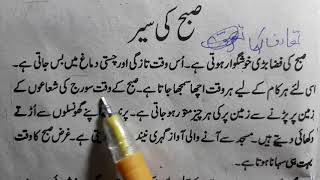 صبح کی سیر
صبح کی فضا بڑی خوشگوار ہوتی ہے۔ اُس وقت تازگی اور چستی دماغ میں بس جاتی ہے۔
اسی لئے ہر کام کے لیے ہر وقت اچھا سمجھا جاتا ہے۔ صبح کے وقت سورج کی شعاعوں کے
زمین پر پڑنے سے زمین پر کی ہر چیز منور ہو جاتی ہے۔ اپنے گھونسلوں سے اُڑتے
دکھائی دیتے ہیں۔ مسجد سے آنے والی آواز گہری نیند غرض صبح کا وقت
بہت ہی سہانا ہوتا ہے۔